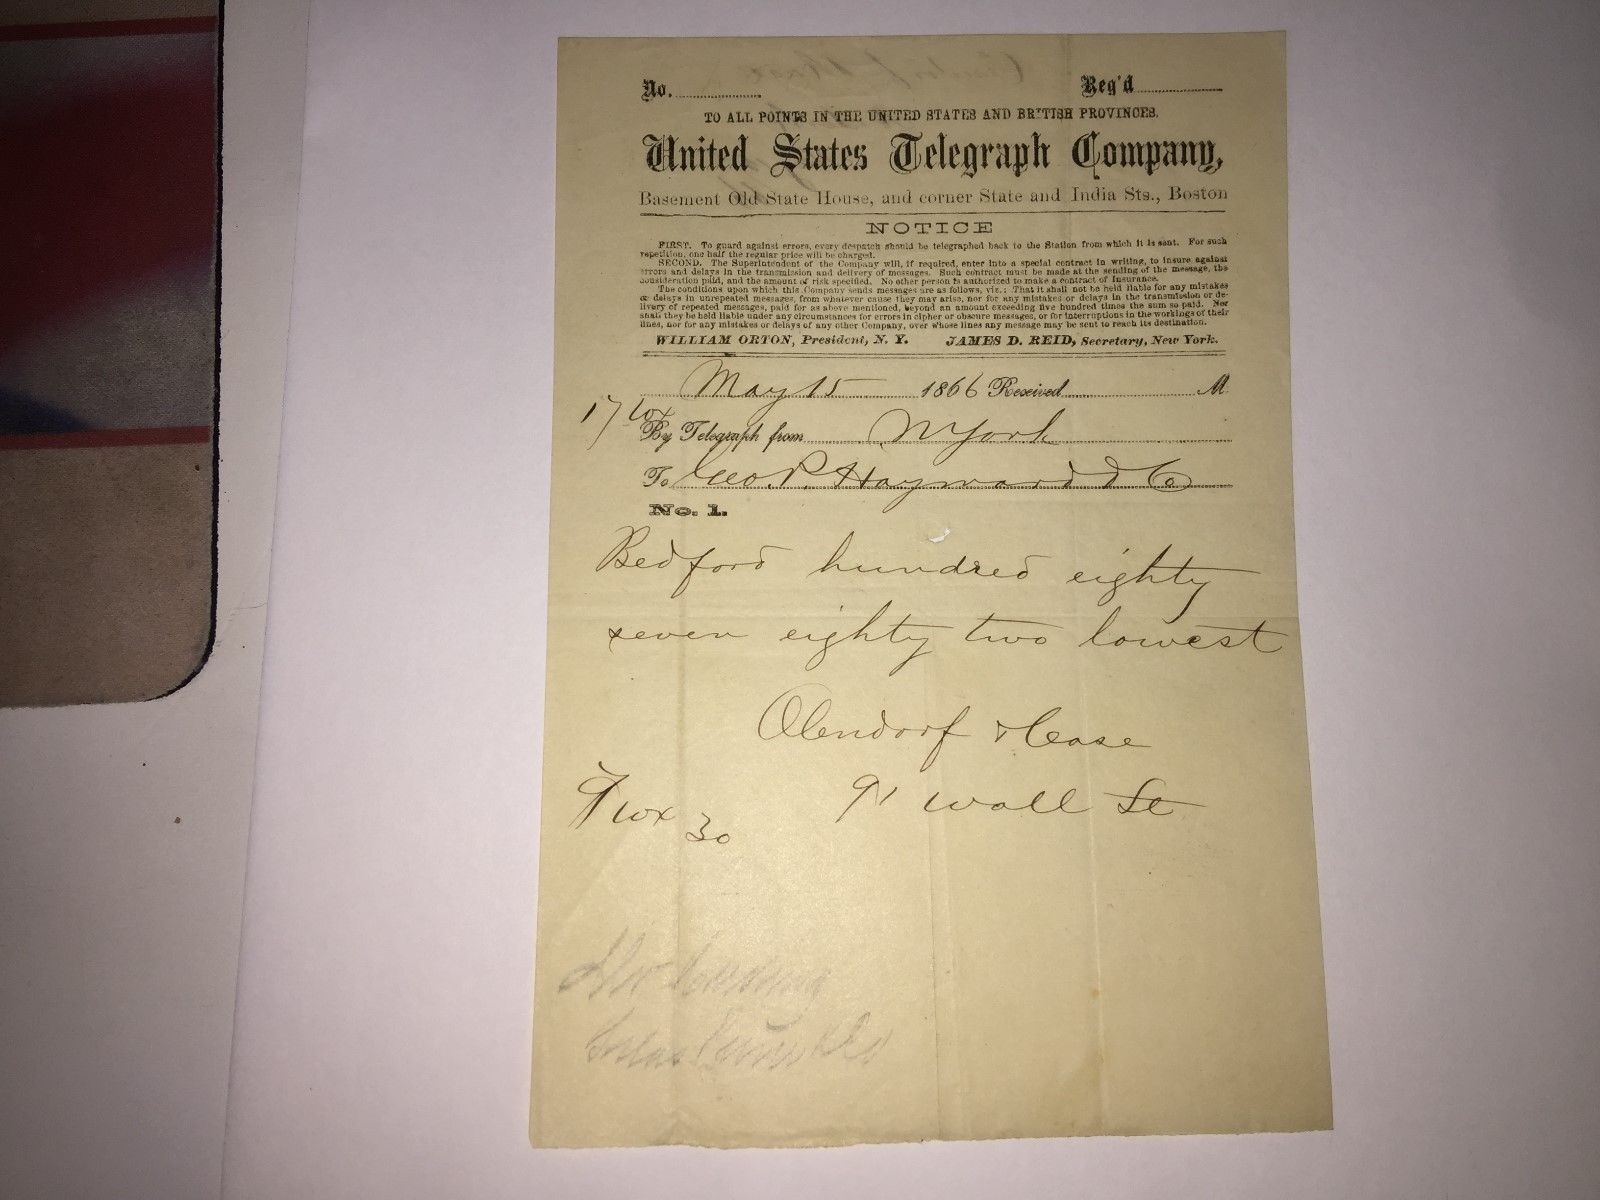 No. Reg'd
TO ALL POINTS IN THE UNITED STATES AND BRITISH PROVINCES.
United States Telegraph Company,
Basement Old State House, and corner State and India Sts., Boston
NOTICE
FIRST. To guard against errors, every despatch should be telegraphed back to the Station from which it is sent. For such
repetition, one half the regular price will be charged.
SECOND. The Superintendent of the Company will, if required, enter into a special contract in writing, to insure against
errors and delays in the transmission and delivery of messages. Such contract must be made at the sending of the message, the
consideration paid, and the amount of risk specified. No other person is authorized to make a contract of Insurance.
The conditions upon which this Company sends messages are as follows, viz.: That it shall not be held liable for any mistakes
or delays in unrepeated messages, from whatever cause they may arise, nor for any mistakes or delays in the transmission or de-
livery of repeated messages, paid for as above mentioned, beyond an amount exceeding five hundred times the sum so paid. Nor
shall they be held liable under any circumstances for errors in cipher or obscure messages, or for interruptions in the workings of their
lines, nor for any mistakes or delays of any other Company, over whose lines any message may be sent to reach its destination.
WILLIAM ORTON, President, N. Y. JAMES D. REID, Secretary, New York.
May 15 1866 Received M.
17
By Telegraph from N York
To Geo. P. Hayward & Co
No. 1.
Bedford hundred eighty
seven eighty two lowest
Olendorf & Case
91 Wall St
30